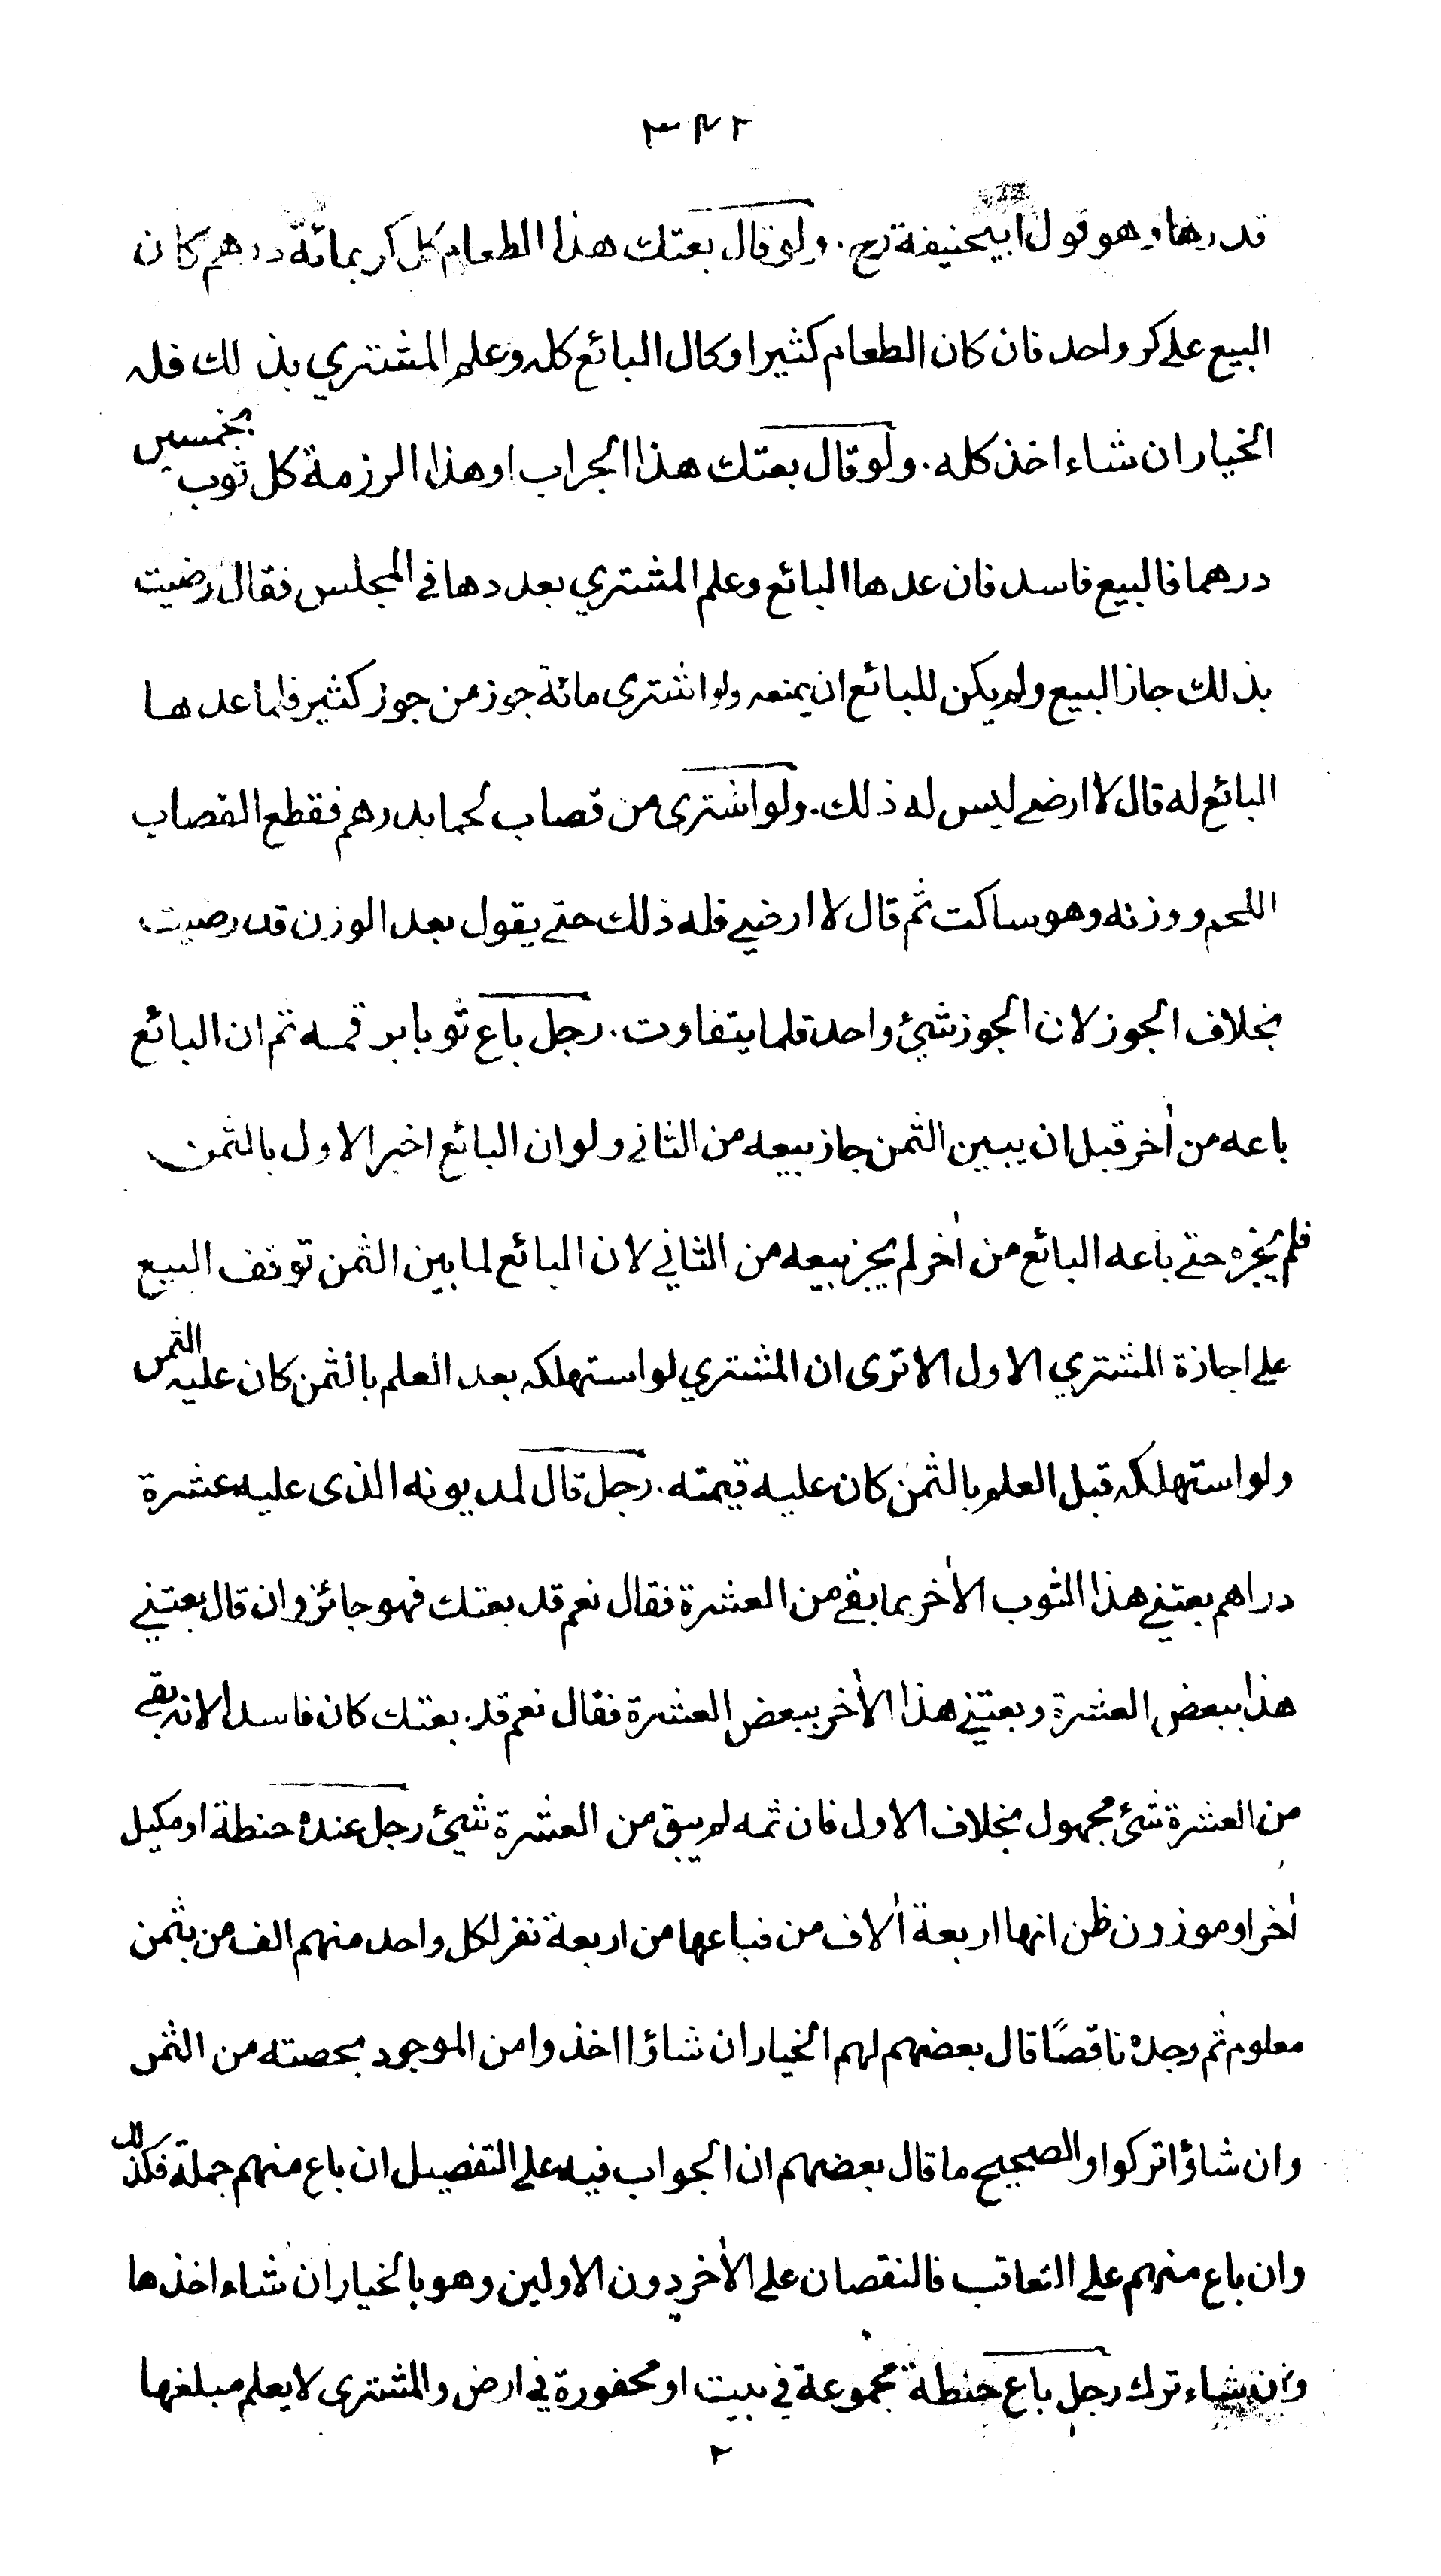 ٣٤٢
قدرها وهو قول ابيحنيفة رح. ولو قال بعتك هذا الطعام كل كر بمائة درهم كان
البيع على كر واحد فان كان الطعام كثيرا وكال البائع كله وعلم المشتري بذلك فله
الخيار ان شاء اخذ كله. ولو قال بعتك هذا الجراب او هذا الرزمة كل ثوب بخمسين
درهما فالبيع فاسد فان عدها البائع وعلم المشتري بعددها في المجلس فقال رضيت
بذلك جاز البيع ولم يكن للبائع ان يمنعه ولو اشترى مائة جوز من جوز كثير فلما عدها
البائع له قال لا ارضى ليس له ذلك. ولو اشترى من قصاب لحما بدرهم فقطع القصاب
اللحم ووزنه وهو ساكت ثم قال لا ارضى فله ذلك حتى يقول بعد الوزن قد رضيت
بخلاف الجوز لان الجوز شيئ واحد قلما يتفاوت. رجل باع ثوبا برقمه ثم ان البائع
باعه من أخر قبل ان يبين الثمن جاز بيعه من الثاني ولو ان البائع اخبر الاول بالثمن
فلم يجزه حتى باعه البائع من أخر لم يجز بيعه من الثاني لان البائع لما بين الثمن توقف البيع
على اجازة المشتري الاول الا ترى ان المشتري لو استهلكه بعد العلم بالثمن كان عليه الثمن
ولو استهلكه قبل العلم بالثمن كان عليه قيمته. رجل قال لمديونه الذى عليه عشرة
دراهم بعتني هذا الثوب الأخر بما بقي من العشرة فقال نعم قد بعتك فهو جائز وان قال بعتني
هذا ببعض العشرة وبعتني هذا الأخر ببعض العشرة فقال نعم قد بعتك كان فاسدا لانه بقي
من العشرة شئ مجهول بخلاف الاول فان ثمه لم يبق من العشرة شيئ رجل عنده حنطة او مكيل
أخر او موزون ظن انها اربعة ألاف من فباعها من اربعة نفر لكل واحد منهم الف من بثمن
معلوم ثم وجده ناقصًا قال بعضهم لهم الخيار ان شاؤا اخذوا من الموجود بحصته من الثمن
وان شاؤا تركوا والصحيح ما قال بعضهم ان الجواب فيه على التفصيل ان باع منهم جملة فكذلك
وان باع منهم على التعاقب فالنقصان على الأخر دون الاولين وهو بالخيار ان شاء اخذها
وان شاء ترك رجل باع حنطة مجموعة في بيت او محفورة في ارض والمشترى لا يعلم مبلغها
٢